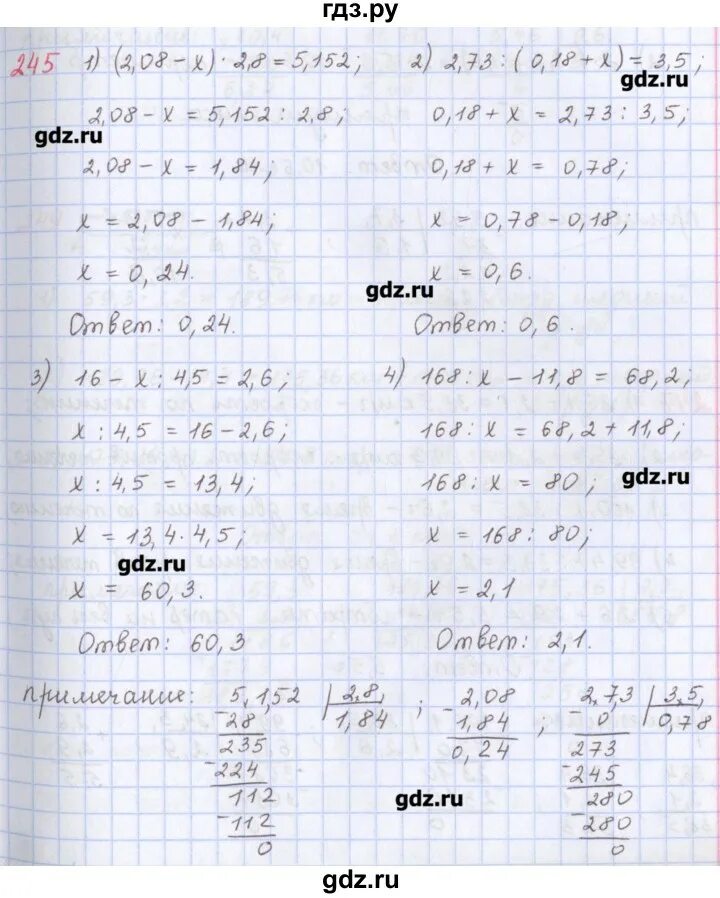 гдз.ру
245 1) (2,08 - x) · 2,8 = 5,152; 2) 2,73 : (0,18 + x) = 3,5;
gdz.ru
2,08 - x = 5,152 : 2,8; 0,18 + x = 2,73 : 3,5;
gdz.ru
2,08 - x = 1,84; 0,18 + x = 0,78;
x = 2,08 - 1,84; x = 0,78 - 0,18;
x = 0,24. x = 0,6.
gdz.ru
Ответ: 0,24. Ответ: 0,6.
3) 16 - x : 4,5 = 2,6; 4) 168 : x - 11,8 = 68,2;
x : 4,5 = 16 - 2,6; 168 : x = 68,2 + 11,8;
x : 4,5 = 13,4; 168 : x = 80;
gdz.ru
x = 13,4 · 4,5; x = 168 : 80;
gdz.ru
x = 60,3. x = 2,1
Ответ: 60,3 Ответ: 2,1.
примечание: 5,1,52 | 2,8, ; 2,08 , 2,7,3 | 3,5,
-28 1,84 -1,84 -0 0,78
235 0,24 273
-224 -245
112 280
gdz.ru
-112 -280
0 0
gdz.ru